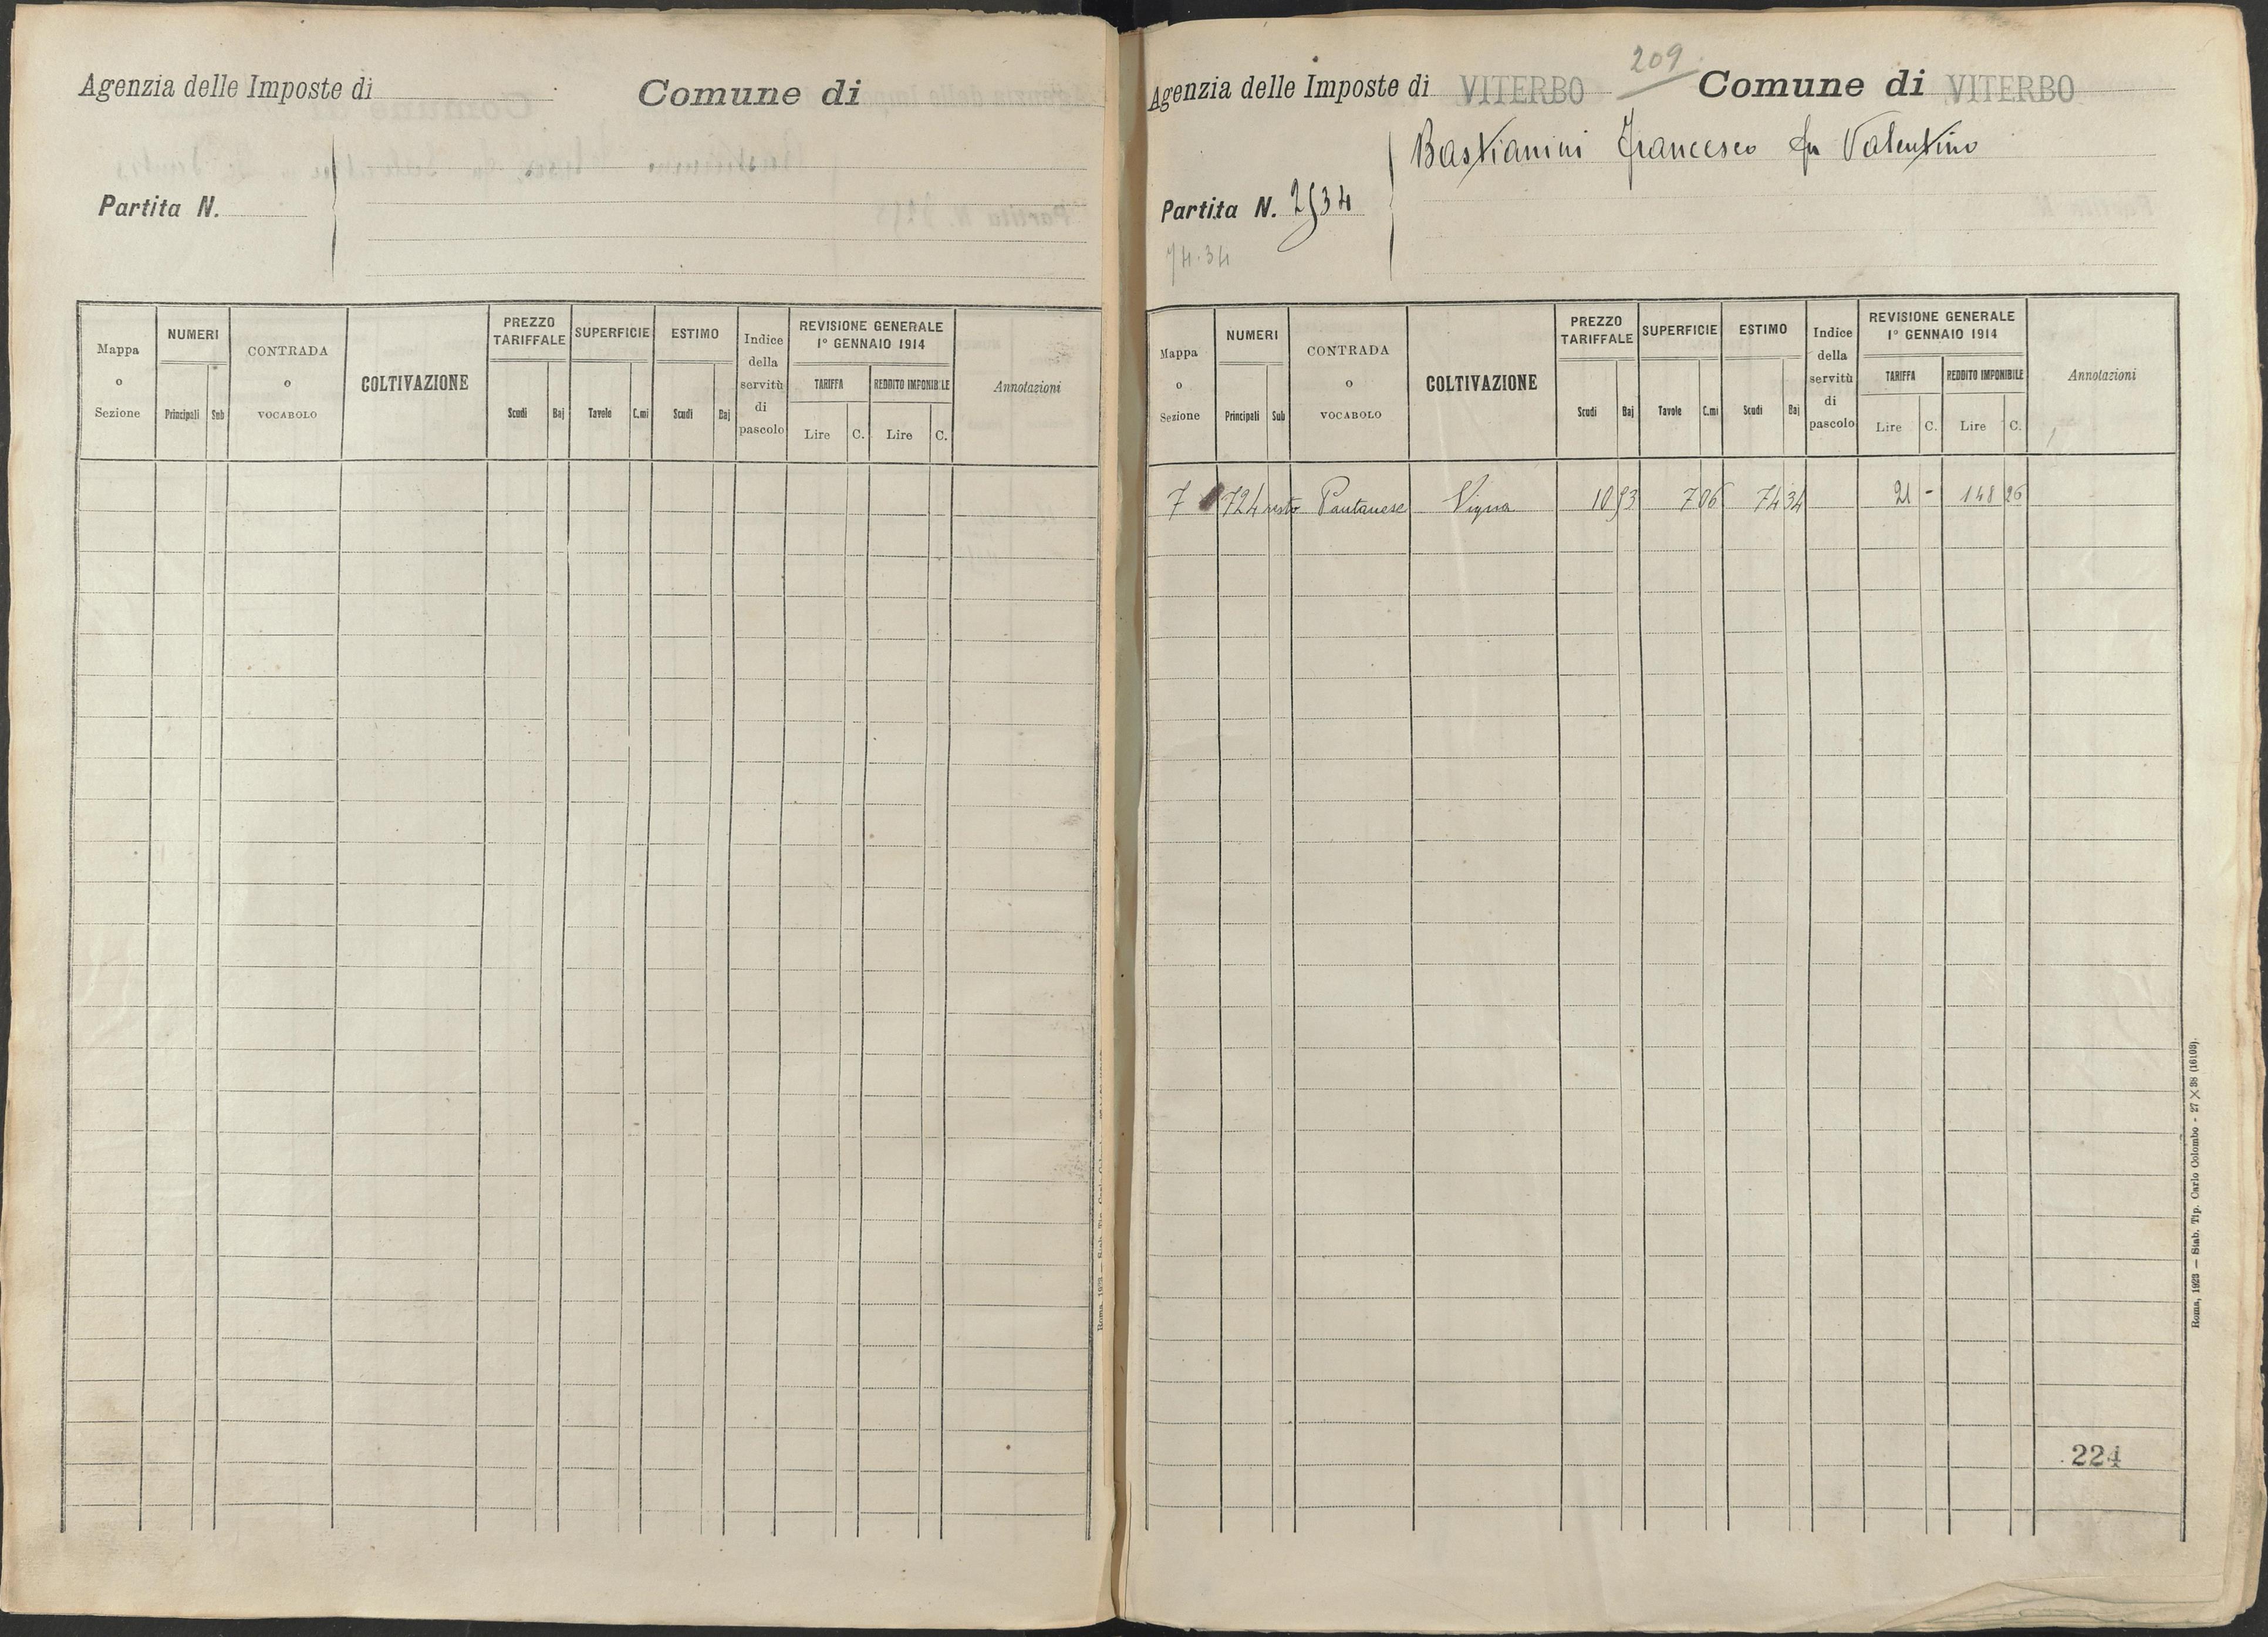 Agenzia delle Imposte di
Comune di
Partita N.
Mappa o Sezione
NUMERI
Principali
Sub
CONTRADA o VOCABOLO
COLTIVAZIONE
PREZZO TARIFFALE
Scudi
Baj
SUPERFICIE
Tavole
C.mi
ESTIMO
Scudi
Baj
Indice della servitù di pascolo
REVISIONE GENERALE
1° GENNAIO 1914
TARIFFA
Lire
C.
REDDITO IMPONIBILE
Lire
C.
Annotazioni
209
Agenzia delle Imposte di VITERBO Comune di VITERBO
Bastianini Francesco fu Valentino
Partita N. 2534
74.34
Mappa o Sezione
NUMERI
Principali
Sub
CONTRADA o VOCABOLO
COLTIVAZIONE
PREZZO TARIFFALE
Scudi
Baj
SUPERFICIE
Tavole
C.mi
ESTIMO
Scudi
Baj
Indice della servitù di pascolo
REVISIONE GENERALE
1° GENNAIO 1914
TARIFFA
Lire
C.
REDDITO IMPONIBILE
Lire
C.
Annotazioni
7 724 resto Pantanese Vigna 10 53 7 06 74 34 21 - 148 26
Roma, 1923 — Stab. Tip. Carlo Colombo - 27 X 38 (16109).
224